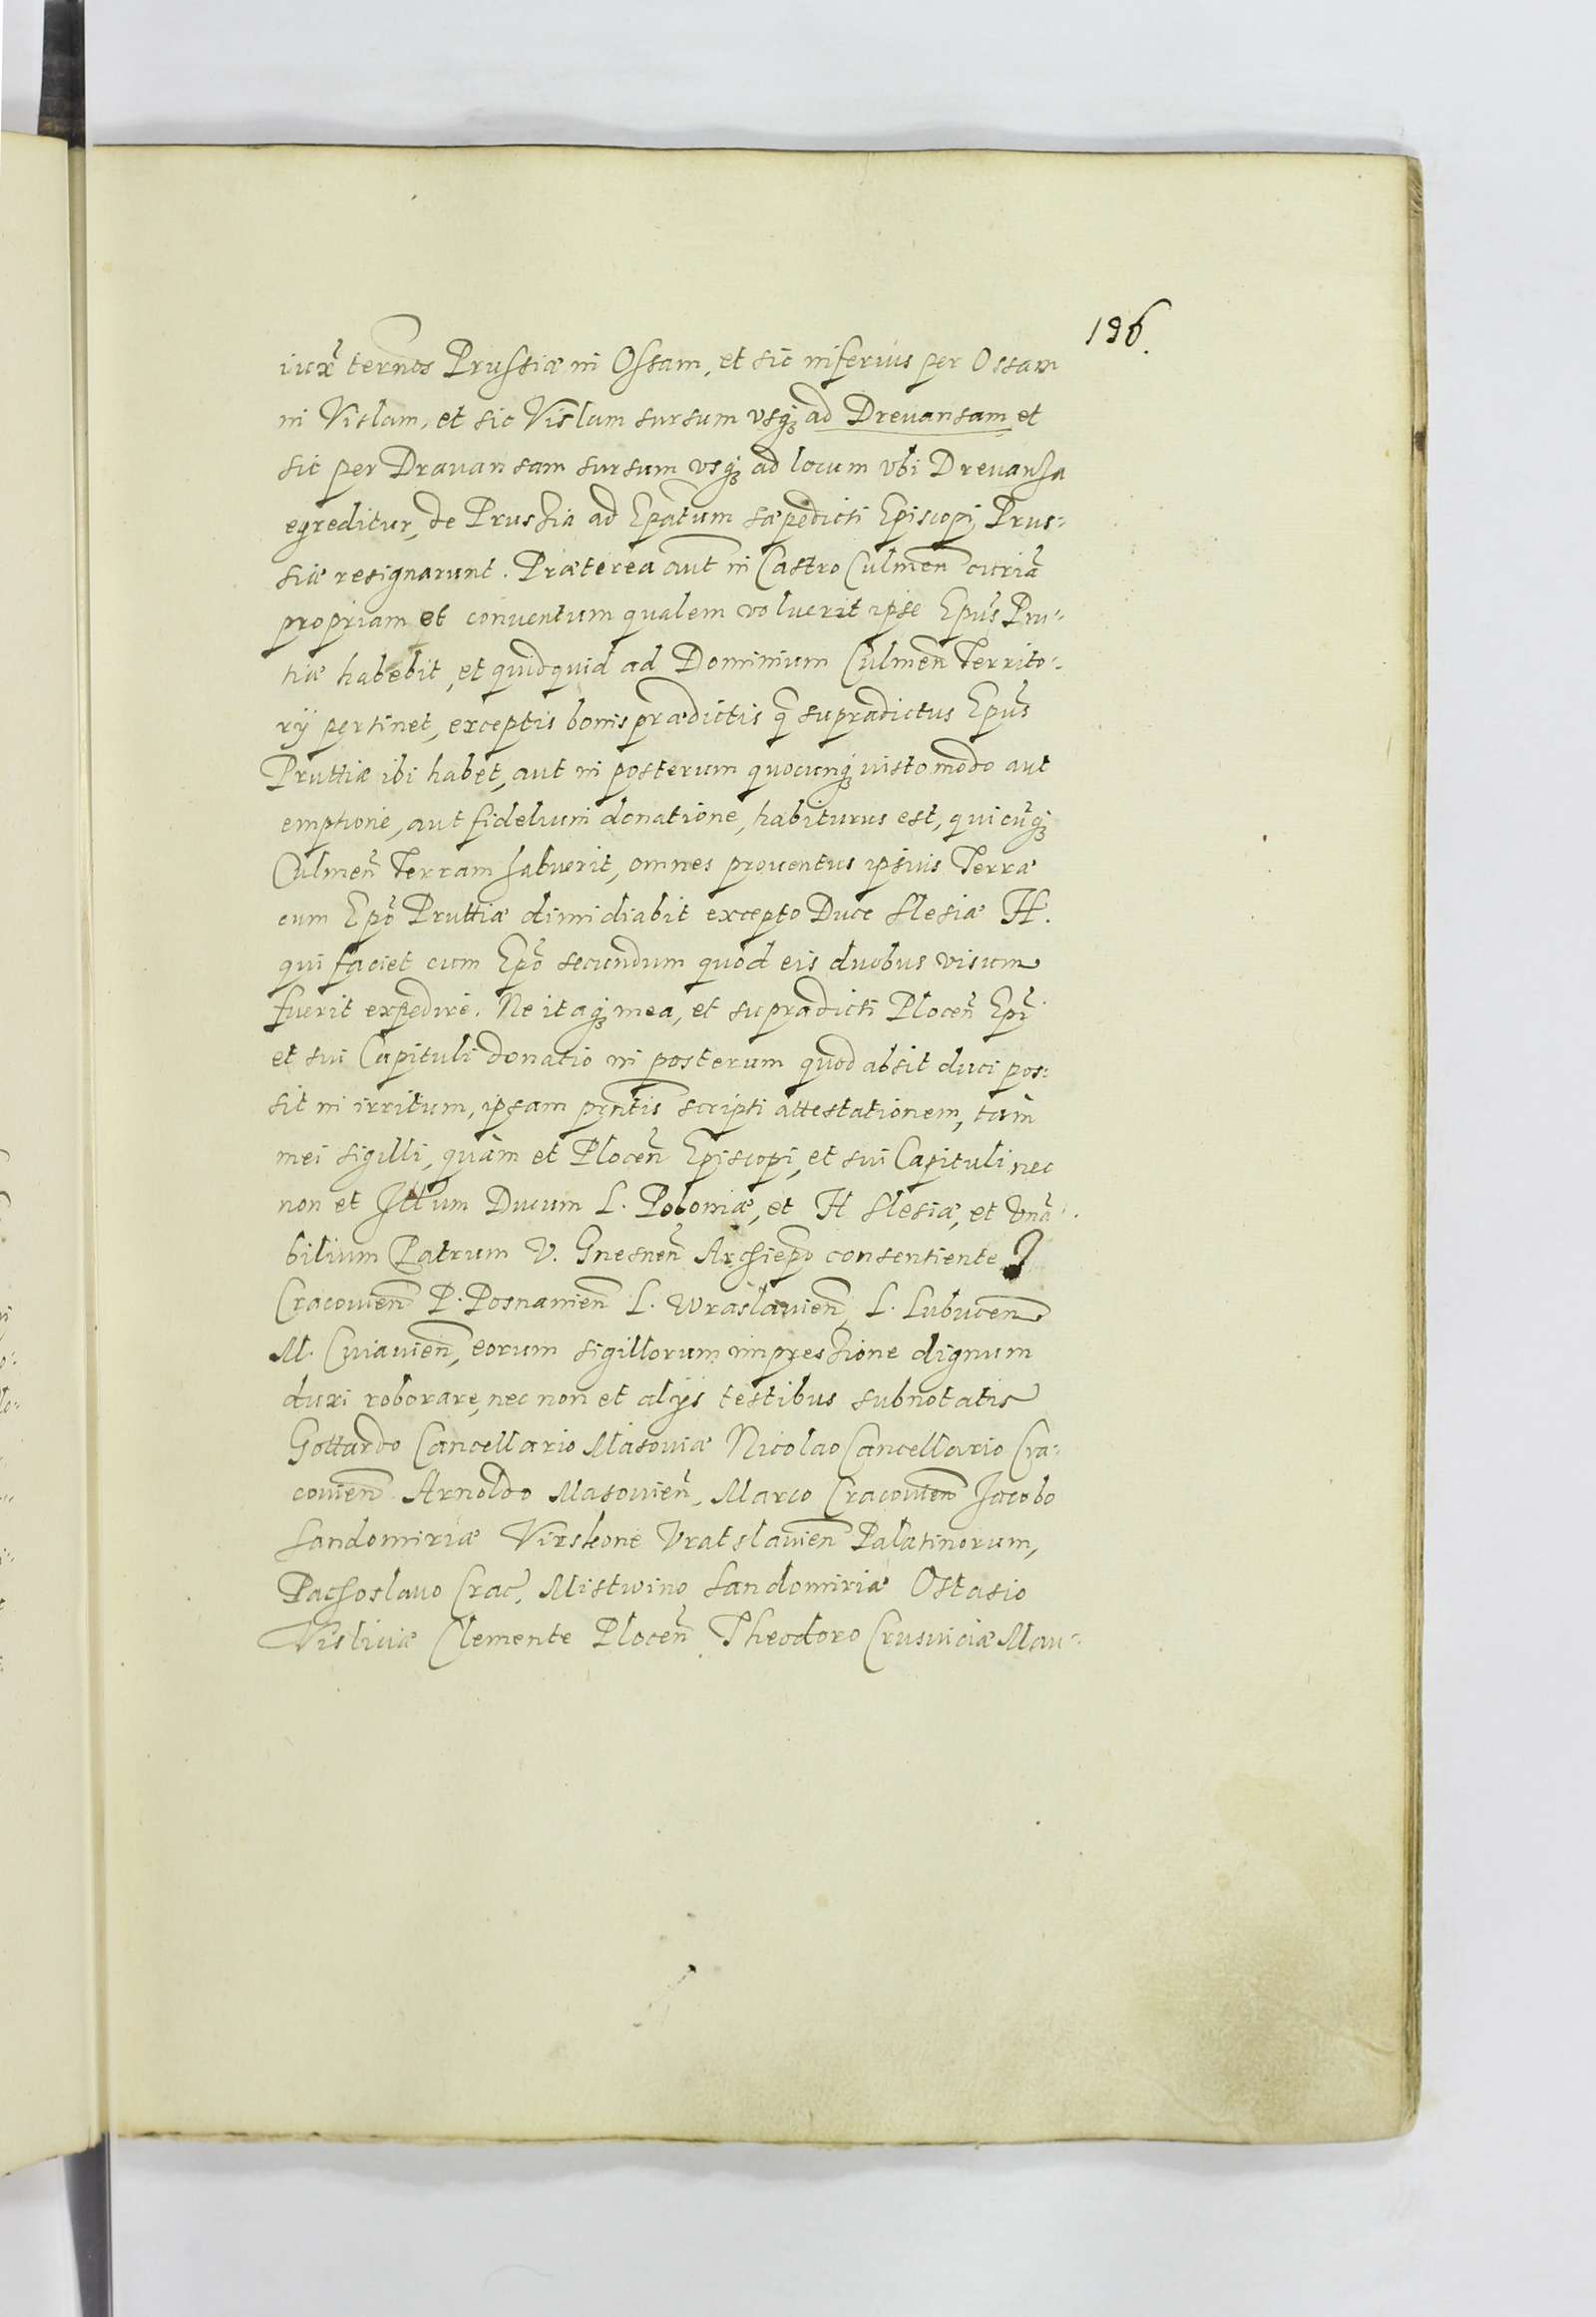 196.
iux̃ term̃os Prussiæ in Ossam, et sic inferius per Ossam
in Vislam, et sic Vislam sursum vsq₃ ad Dreuansam et
sic per Drauansam sursum vsq₃ ad locum vbi Dreuansa
egreditur, de Prussia ad Ep̃atum sæpedicti Episcopi Prus:
siæ resignarunt. Præterea aut̃ in Castro Culmeñ curiã
propriam et conuentum qualem voluerit ipse Ep̃us Pru:
tiæ habebit, et quidquid ad Dominium Culmeñ Territo:
rij pertinet, exceptis bonis prædictis q̃ supradictus Ep̃us
Pruttiæ ibi habet, aut in posterum quocunq₃ iusto modo aut
emptione, aut fidelium donatione, habiturus est, quicũq₃
Culmeñ Terram habuerit, omnes prouentus ipsius Terræ
cum Ep̃o Pruttiæ dimidiabit excepto Duce Slesiæ H.
qui faciet cum Ep̃o secundum quod eis duobus visum
fuerit expedire. Ne itaq₃ mea, et supradicti Ploceñ Ep̃i
et sui Capituli donatio in posterum quod absit duci pos:
sit in irritum, ipsam pr̃ntis scripti attestationem, tam
mei sigilli, quàm et Ploceñ Episcopi, et sui Capituli nec
non et Ill̃um Ducum L. Poloniæ, et H Slesiæ, et Vñã:
bilium Patrum V. Gnesneñ Archiep̃o consentiente J
Cracouieñ P. Posnanieñ L. Wraslauieñ, L. Lubuceñ
M. Cuiauieñ, eorum sigillorum impressione dignum
duxi roborare, nec non et alijs testibus subnotatis
Gottardo Cancellario Masouiæ Nicolao Cancellario Cra:
couieñ Arnoldo Masouieñ, Marco Cracouieñ Jacobo
Sandomiriæ Virskone Vratslauieñ Palatinorum,
Pachoslauo Crac̃, Mistwino Sandomiriæ Ostasio
Visliciæ Clemente Ploceñ, Theodoro Crusuiciæ Mau: